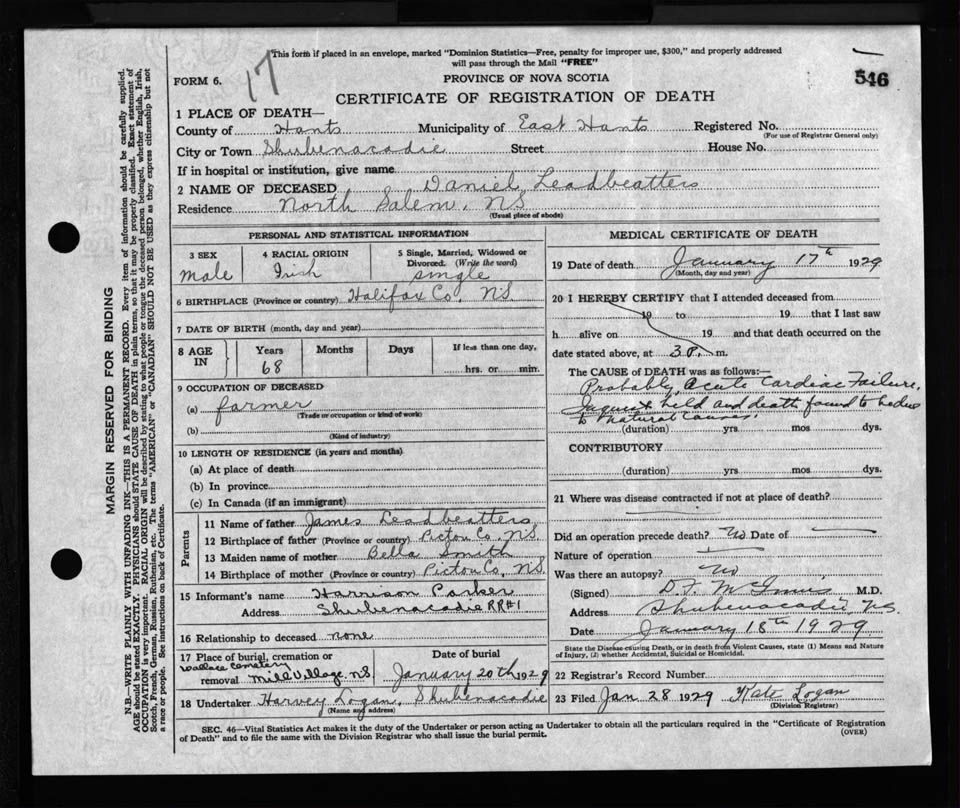 This form if placed in an envelope, marked "Dominion Statistics—Free, penalty for improper use, $300," and properly addressed
will pass through the Mail "FREE"
17
546
FORM 6.
PROVINCE OF NOVA SCOTIA
CERTIFICATE OF REGISTRATION OF DEATH
1 PLACE OF DEATH—
County of Hants Municipality of East Hants Registered No.
(For use of Registrar General only)
City or Town Shubenacadie Street House No.
If in hospital or institution, give name
2 NAME OF DECEASED Daniel Leadbeatters
Residence North Salem, NS
(Usual place of abode)
PERSONAL AND STATISTICAL INFORMATION
3 SEX
male
4 RACIAL ORIGIN
Irish
5 Single, Married, Widowed or Divorced. (Write the word)
single
6 BIRTHPLACE (Province or country) Halifax Co, NS.
7 DATE OF BIRTH (month, day and year)
8 AGE IN
Years
68
Months
Days
If less than one day,
hrs. or min.
9 OCCUPATION OF DECEASED
(a) farmer
(Trade or occupation or kind of work)
(b)
(Kind of industry)
10 LENGTH OF RESIDENCE (in years and months)
(a) At place of death
(b) In province
(c) In Canada (if an immigrant)
Parents
11 Name of father James Leadbeatters
12 Birthplace of father (Province or country) Pictou Co, NS.
13 Maiden name of mother Bella Smith
14 Birthplace of mother (Province or country) Pictou Co, NS.
15 Informant's name Harrison Parker
Address Shubenacadie RR#1
16 Relationship to deceased none
17 Place of burial, cremation or
Wallace Cemetery
removal Mill Village, NS
Date of burial
January 20th 1929
18 Undertaker Harvey Logan, Shubenacadie
(Name and address)
MEDICAL CERTIFICATE OF DEATH
19 Date of death January 17th 1929
(Month, day and year)
20 I HEREBY CERTIFY that I attended deceased from
19 to 19 that I last saw
h alive on 19 and that death occurred on the
date stated above, at 3 P. m.
The CAUSE OF DEATH was as follows:—
Probably Acute Cardiac Failure.
Inquest held and death found to be due
to Natural Causes.
(duration) yrs. mos dys.
CONTRIBUTORY
(duration) yrs. mos. dys.
21 Where was disease contracted if not at place of death?
Did an operation precede death? No Date of
Nature of operation
Was there an autopsy? No
(Signed) D.F. McInnis M.D.
Address Shubenacadie NS.
Date January 18th 1929
State the Disease causing Death, or in death from Violent Causes, state (1) Means and Nature
of Injury, (2) whether Accidental, Suicidal or Homicidal.
22 Registrar's Record Number
23 Filed Jan 28 1929 Kate Logan
(Division Registrar)
SEC. 46—Vital Statistics Act makes it the duty of the Undertaker or person acting as Undertaker to obtain all the particulars required in the "Certificate of Registration
of Death" and to file the same with the Division Registrar who shall issue the burial permit.
(OVER)
MARGIN RESERVED FOR BINDING
N.B.—WRITE PLAINLY WITH UNFADING INK—THIS IS A PERMANENT RECORD. Every item of information should be carefully supplied.
AGE should be stated EXACTLY. PHYSICIANS should STATE CAUSE OF DEATH in plain terms, so that it may be properly classified. Exact statement of
OCCUPATION is very important. RACIAL ORIGIN will be described by stating to what people or tongue the deceased person belonged, whether English, Irish,
Scotch, French, German, Russian, Ruthenian, etc. The terms "AMERICAN" or "CANADIAN" SHOULD NOT BE USED as they express citizenship but not
a race or people. See instructions on back of Certificate.